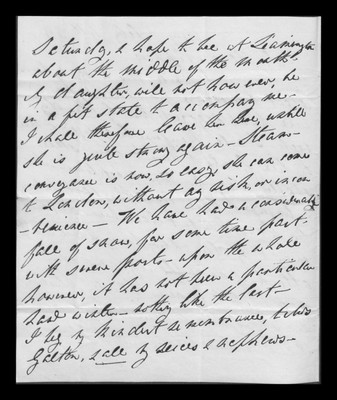 Saturday, & hope to see at Leamington
about the middle of the month -
My daughter, will not however, be
in a fit state to accompany me -
I shall therefore leave her here, until
she is quite strong again - Steam
conveyance is now, so easy, she can come
to London, without any risk, or incon
-venience - We have had a considerable
fall of snow, for some time past -
with severe frosts - upon the whole
however, it has not been a particular
hard winter - nothing like the last -
I beg my kindest remembrance, to Mrs
Galton, & all my nieces & nephews -